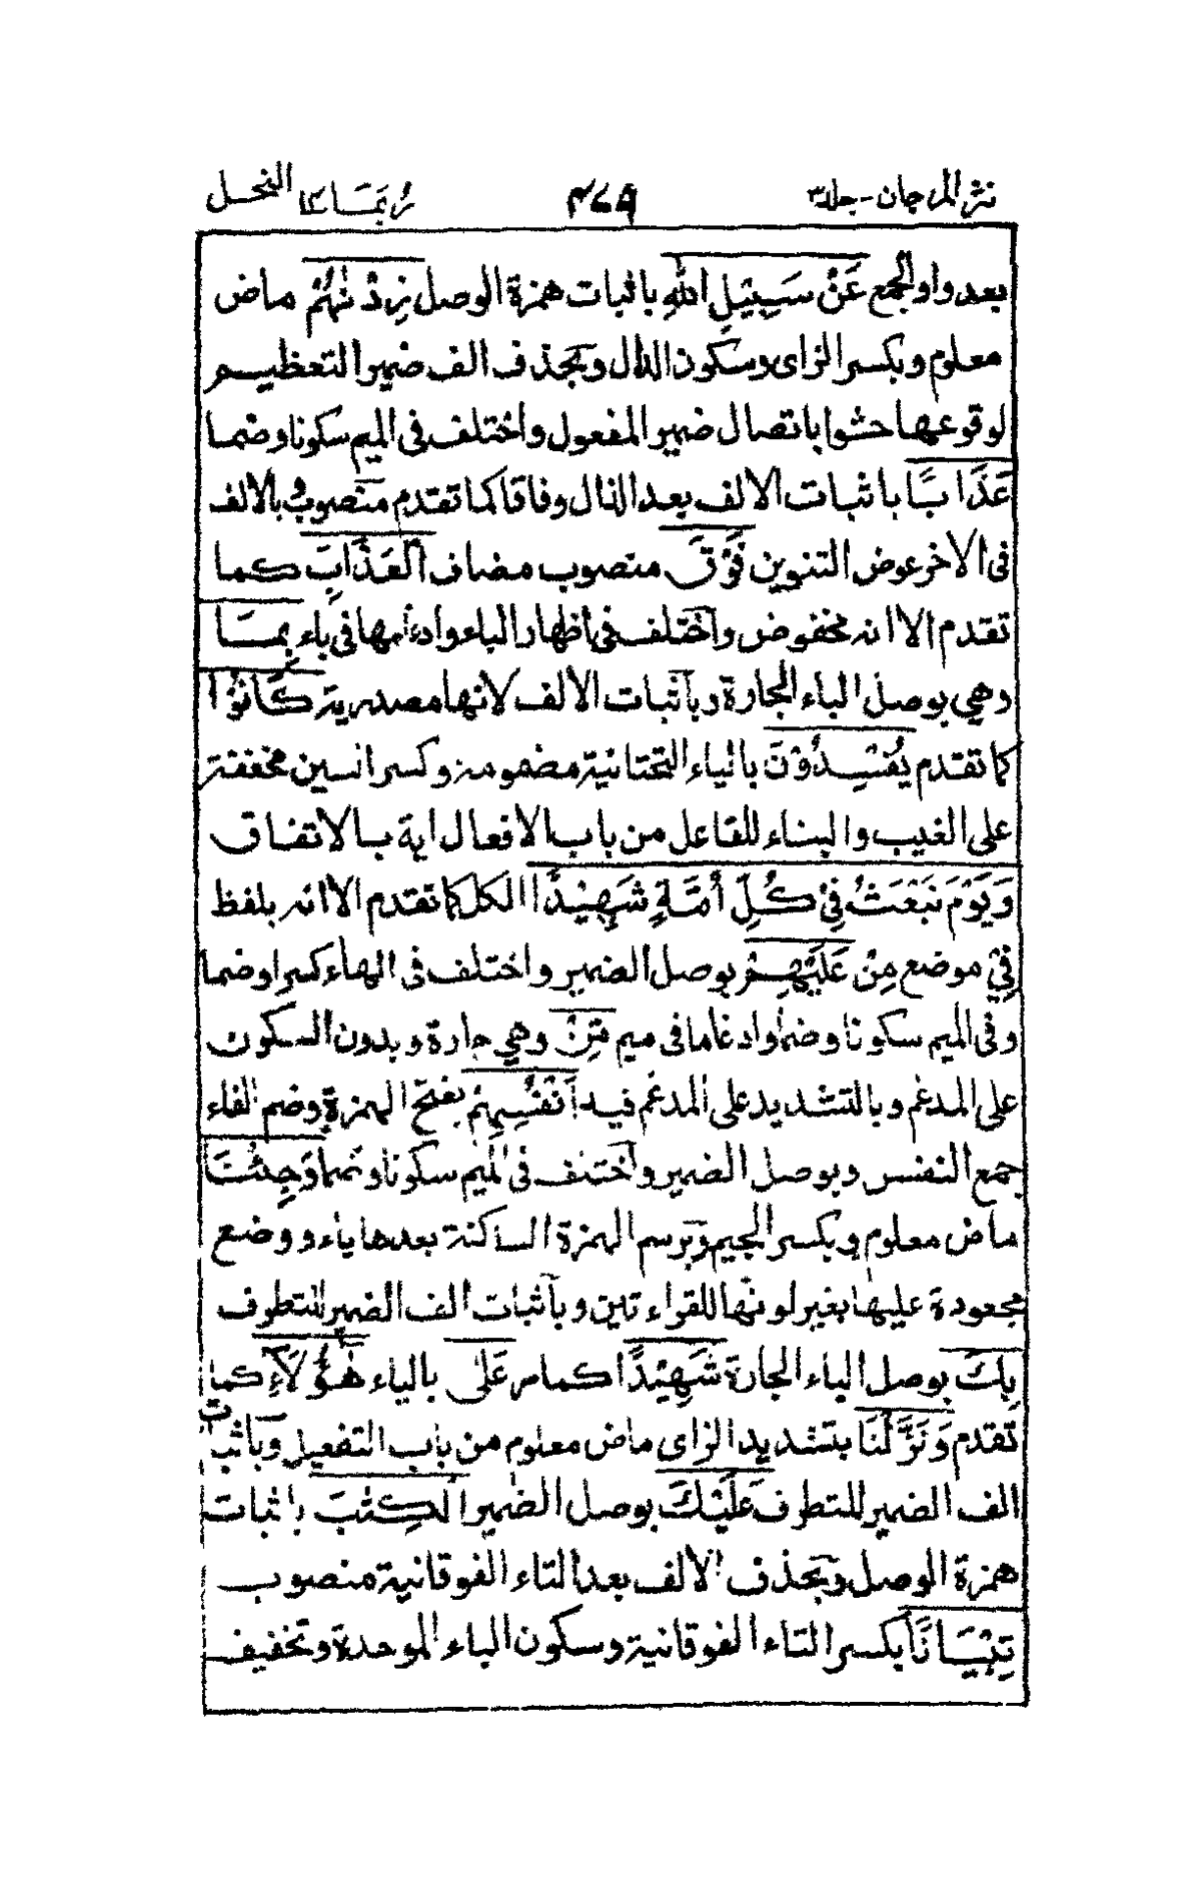 نثر المرجان - جلد ٣ ٤٧٩ ربما ١٤ النحل
بعد واو الجمع عَنْ سَبِيْلِ اللّٰهِ باثبات همزة الوصل زِدْنٰهُمْ ماض
معلوم وبكسر الزاى وسكون الدال وبحذف الف ضمير التعظيم
لوقوعها حشوا باتصال ضمير المفعول واختلف فى الميم سكونا وضما
عَذَابًا باثبات الالف بعد الذال وفاقا كما تقدم منصوب وبالالف
فى الاخر عوض التنوين فَوْقَ منصوب مضاف الْعَذَابِ كما
تقدم الا انه مخفوض واختلف فى اظهار الباء وادغامها فى باء بِمَا
وهي بوصل الباء الجارة وباثبات الالف لانها مصدرية كَانُوْا
كما تقدم يُفْسِدُوْنَ بالياء التحتانية مضمومة وكسر السين مخففة
على الغيب والبناء للفاعل من باب الافعال اية بالاتفاق
وَيَوْمَ نَبْعَثُ فِيْ كُلِّ اُمَّةٍ شَهِيْدًا الكل كما تقدم الا انه بلفظ
فِيْ موضع مِنْ عَلَيْهِمْ بوصل الضمير واختلف فى الهاء كسرا وضما
وفى الميم سكونا وضما وادغاما فى ميم مِّنْ وهي جارة وبدون السكون
على المدغم وبالتشديد على المدغم فيه اَنْفُسِهِمْ بفتح الهمزة وضم الفاء
جمع النفس وبوصل الضمير واختلف فى الميم سكونا وضما وَجِئْنَا
ماض معلوم وبكسر الجيم وبرسم الهمزة الساكنة بعدها ياء ووضع
مجعودة عليها بغير لونها للقراءتين وباثبات الف الضمير للتطرف
بِكَ بوصل الباء الجارة شَهِيْدًا كما مر عَلٰى بالياء هٰؤُلَاءِ كما
تقدم وَنَزَّلْنَا بتشديد الزاى ماض معلوم من باب التفعيل وباثبات
الف الضمير للتطرف عَلَيْكَ بوصل الضمير الْكِتٰبَ باثبات
همزة الوصل وبحذف الالف بعد التاء الفوقانية منصوب
تِبْيَانًا بكسر التاء الفوقانية وسكون الباء الموحدة وتخفيف